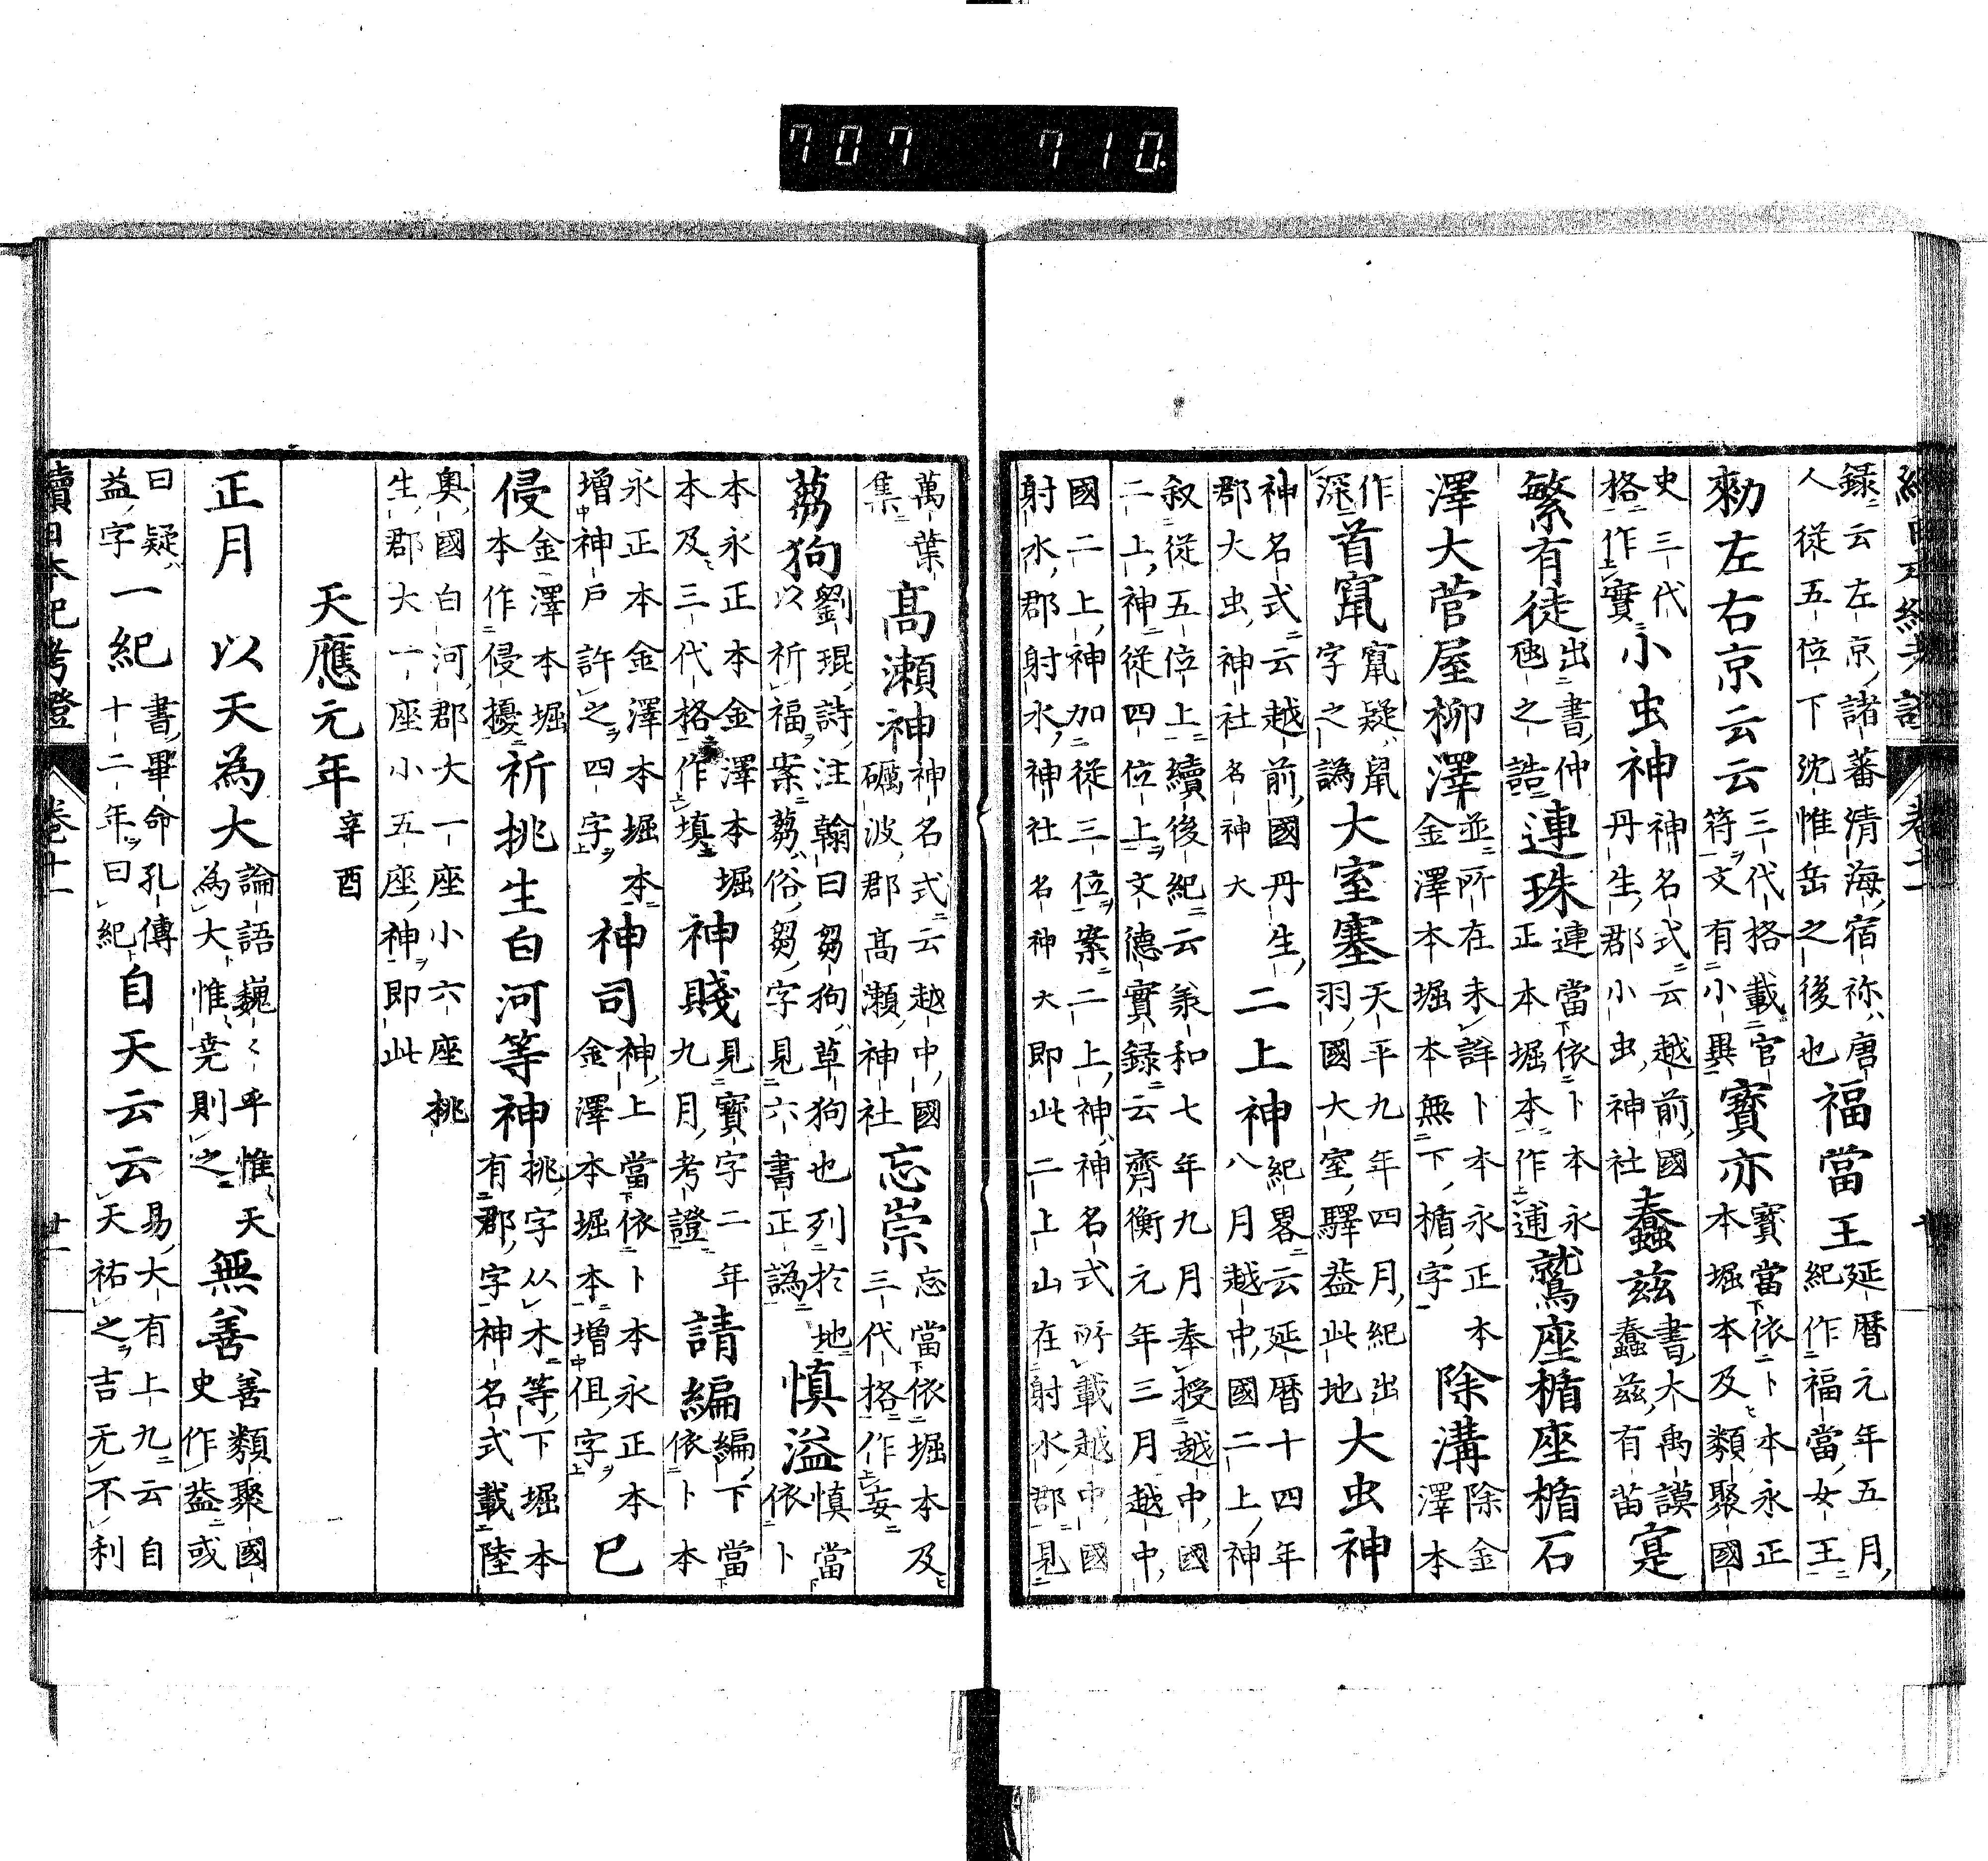 707 710
錄云左京諸蕃清海宿祢唐人從五位下沈惟岳之後也 福當王 延曆元年五月紀作福當女王
勅左右京云云 三代格載官符文有小異 寶亦 寶當依卜本永正本堀本及類聚國
史三代格作實 小虫神 神名式云越前國丹生郡小虫神社 蠢茲 書大禹謨蠢茲有苗 寔
繁有徒 出書仲虺之誥 連珠 連當依卜本永正本堀本作逋 鷲座楯座楯石
澤大菅屋柳澤 並所在未詳卜本永正本金澤本堀本無下楯字 除溝 除金澤本
作深 首竄 竄疑鼠字之譌 大室塞 天平九年四月紀出羽國大室驛葢此地 大虫神
神名式云越前國丹生郡大虫神社名神大 二上神 紀畧云延曆十四年八月越中國二上神
叙從五位上續後紀云承和七年九月奉授越中國二上神從四位上文德實錄云齊衡元年三月越中
國二上神加從三位案二上神神名式所載越中國射水郡射水神社名神大即此二上山在射水郡見
萬葉集 高瀬神 神名式云越中國礪波郡高瀬神社 忘崇 忘當依堀本及三代格作妄
蒭狗 劉琨詩注翰曰芻狗草狗也列於地以祈福案蒭俗芻字見六書正譌 慎溢 慎當依卜
本永正本金澤本堀本及三代格作填 神賤 見寶字二年九月考證 請編 編下當依卜本
永正本金澤本堀本增神戸許之四字 神司 神上當依卜本永正本金澤本堀本增伹字 已
侵 金澤本堀本作侵擾 祈挑生白河等神 挑字从木等下堀本有郡字神名式載陸
奥國白河郡大一座小六座桃生郡大一座小五座神即此
天應元年 辛酉
正月 以天為大 論語巍々乎惟天為大惟尭則之 無善 善類聚國史作葢或
曰疑益字 一紀 書畢命孔傳十二年曰紀 自天云云 易大有上九云自天祐之吉无不利
續日本紀考證 卷十一 廿一